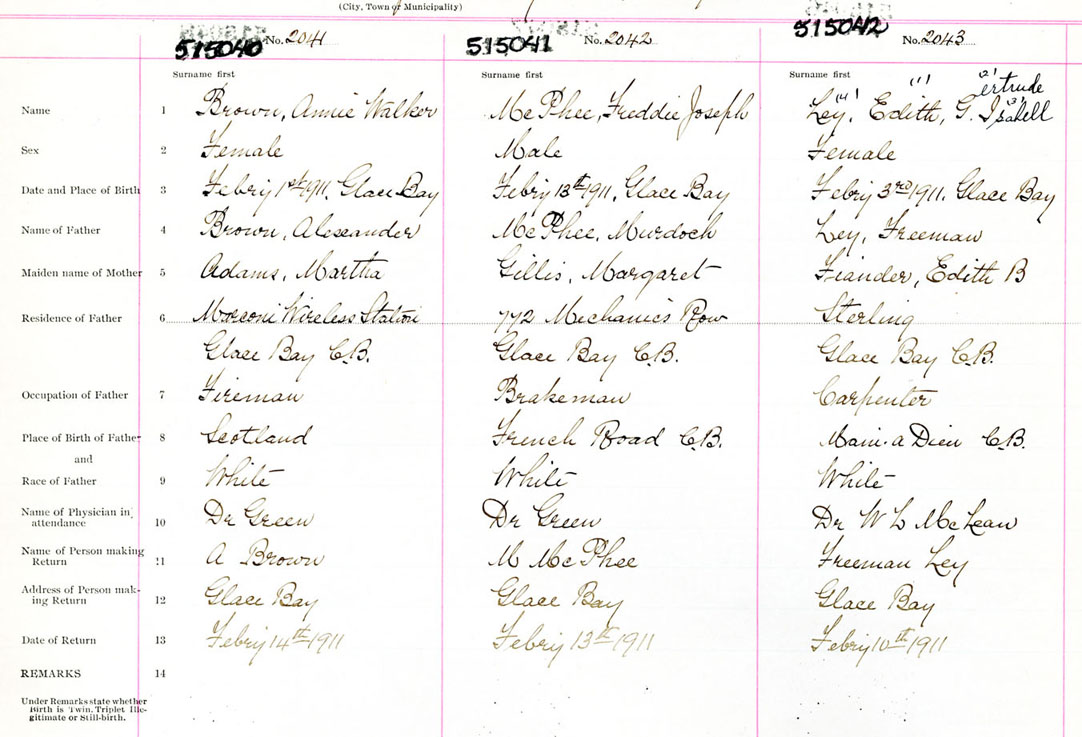 (City, Town or Municipality)
515040 No. 2041 515041 No. 2042 515042 No. 2043
Surname first Surname first Surname first
(1) (2) ertrude
Name 1 Brown, Annie Walker Mc Phee, Freddie Joseph Ley, (4) Edith, G. Isabell (3)
Sex 2 Female Male Female
Date and Place of Birth 3 Febry 1st 1911, Glace Bay Febry 13th 1911, Glace Bay Febry 3rd 1911, Glace Bay
Name of Father 4 Brown, Alexander Mc Phee, Murdoch Ley, Freeman
Maiden name of Mother 5 Adams, Martha Gillis, Margaret Fiander, Edith B
Residence of Father 6 Marconi Wireless Station 772 Mechanics Row Sterling
Glace Bay C.B. Glace Bay C.B. Glace Bay C.B.
Occupation of Father 7 Fireman Brakeman Carpenter
Place of Birth of Father 8 Scotland French Road C.B. Main-a Dieu C.B.
and
Race of Father 9 White White White
Name of Physician in attendance 10 Dr Green Dr Green Dr W L McLean
Name of Person making Return 11 A Brown M Mc Phee Freeman Ley
Address of Person making Return 12 Glace Bay Glace Bay Glace Bay
Date of Return 13 Febry 14th 1911 Febry 13th 1911 Febry 10th 1911
REMARKS 14
Under Remarks state whether
Birth is Twin, Triplet Ille-
gitimate or Still-birth.